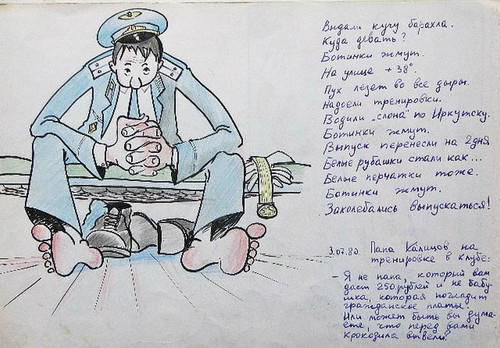 Выдали кучу барахла.
Куда девать?
Ботинки жмут.
На улице +38°.
Пух лезет во все дыры.
Надоели тренировки.
Водили „слона" по Иркутску.
Ботинки жмут.
Выпуск перенесли на 2 дня
Белые рубашки стали как...
Белые перчатки тоже.
Ботинки жмут.
Заколебались выпускаться!
3.07.82. Папа Калицов на
тренировке в клубе:
- Я не папа, который вам
даст 250 рублей и не бабу
шка, которая погладит
гражданское платье.
Или может быть вы дума
ете, что перед вами
крокодила вывели?